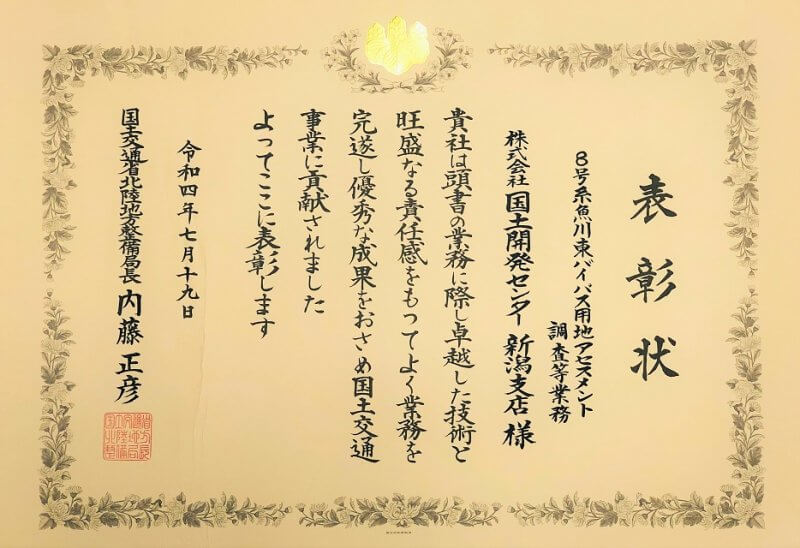 表彰状
8号糸魚川東バイパス用地アセスメント
調査等業務
株式会社 国土開発センター 新潟支店 様
貴社は頭書の業務に際し卓越した技術と
旺盛なる責任感をもつてよく業務を
完遂し優秀な成果をおさめ国土交通
事業に貢献されました
よってここに表彰します
令和四年七月十九日
国土交通省北陸地方整備局長 内藤 正彦